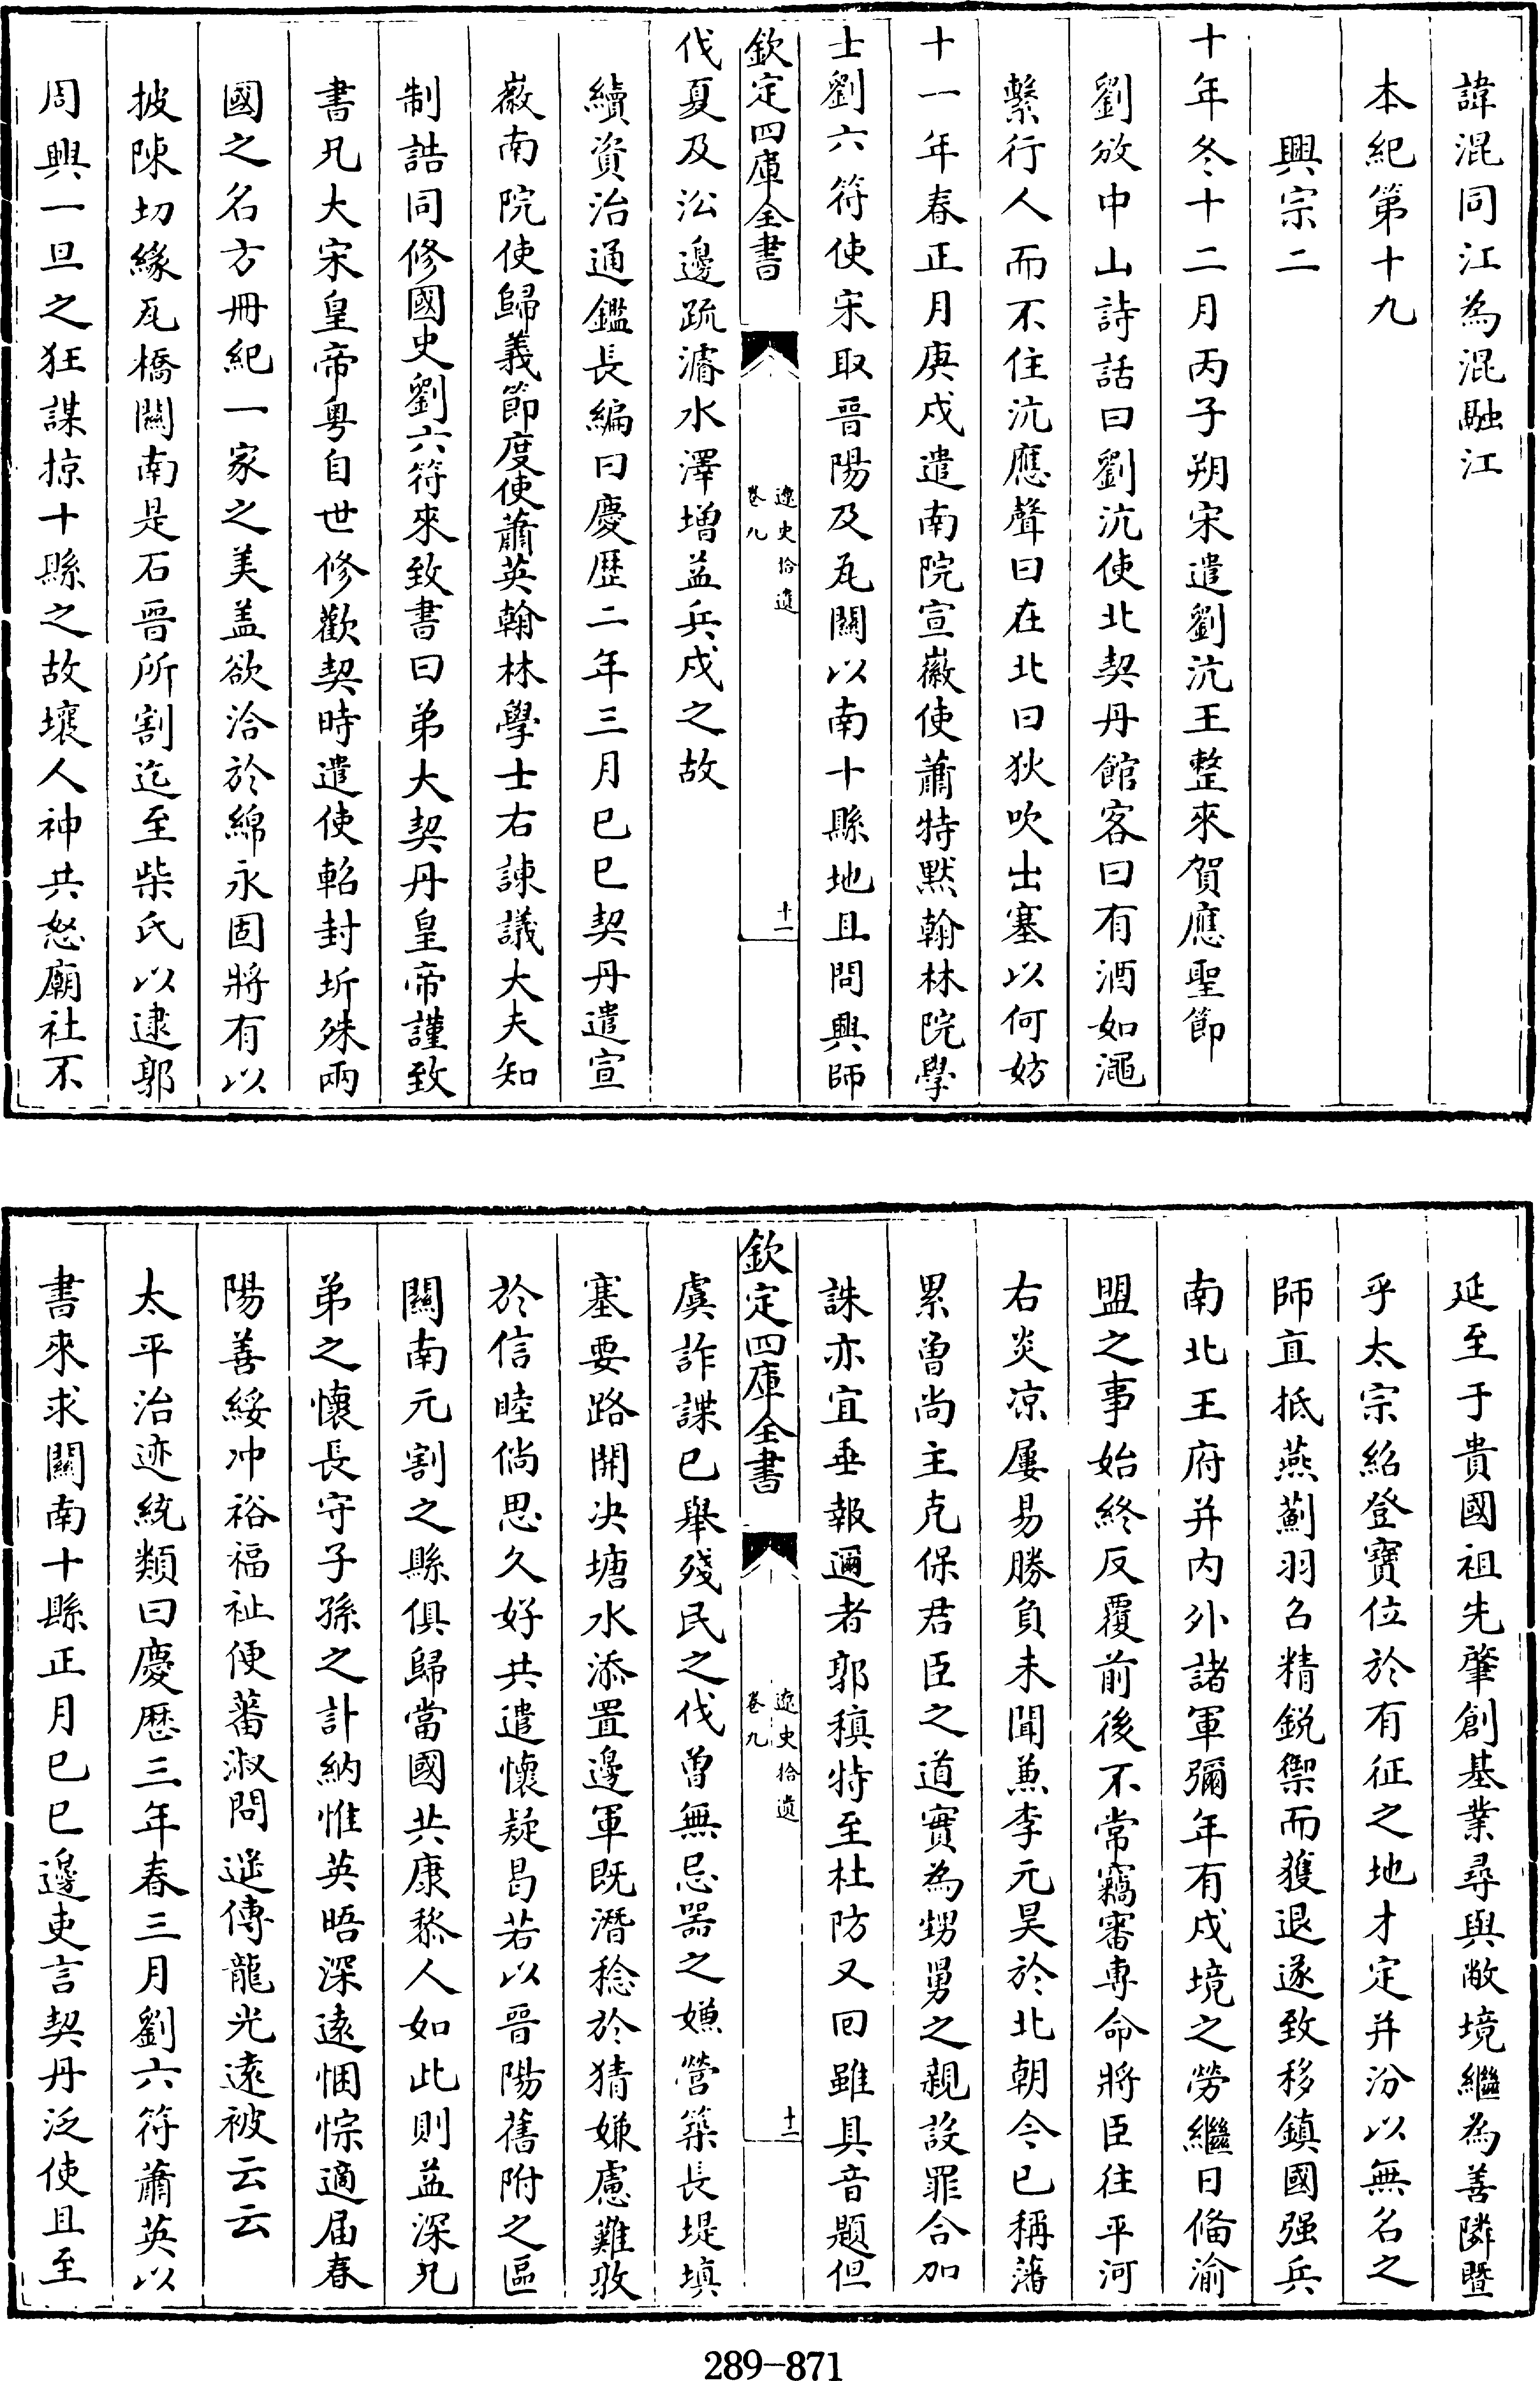 諱混同江為混融江
本紀第十九
興宗二
十年冬十二月丙子朔宋遣劉沆王整來賀應聖節
劉攽中山詩話曰劉沆使北契丹館客曰有酒如澠
繫行人而不住沆應聲曰在北曰狄吹出塞以何妨
十一年春正月庚戌遣南院宣徽使蕭特默翰林院學
士劉六符使宋取晉陽及瓦關以南十縣地且問興師
欽定四庫全書
遼史拾遺
卷九
十一
伐夏及㳂邊疏濬水澤增益兵戍之故
續資治通鑑長編曰慶歴二年三月已巳契丹遣宣
徽南院使歸義節度使蕭英翰林學士右諫議大夫知
制誥同修國史劉六符來致書曰弟大契丹皇帝謹致
書兄大宋皇帝粤自世修歡契時遣使軺封圻殊兩
國之名方冊紀一家之美盖欲洽於綿永固將有以
披陳切緣瓦橋關南是石晉所割迄至柴氏以逮郭
周興一旦之狂謀掠十縣之故壤人神共怒廟社不
延至于貴國祖先肇創基業尋與敝境繼為善隣暨
乎太宗紹登寶位於有征之地才定并汾以無名之
師直抵燕薊羽召精鋭禦而獲退遂致移鎮國强兵
南北王府并内外諸軍彌年有戍境之勞繼日俻渝
盟之事始終反覆前後不常竊審専命將臣往平河
右炎凉屢易勝負未聞兼李元昊於北朝今已稱藩
累曽尚主克保君臣之道實為甥舅之親設罪合加
誅亦宜垂報邇者郭稹特至杜防又回雖具音題但
欽定四庫全書
遼史拾遺
卷九
十二
虞詐諜已舉殘民之伐曽無忌噐之嫌營築長堤填
塞要路開决塘水添置邊軍既潛稔於猜嫌慮難敦
於信睦倘思久好共遣懷疑曷若以晉陽舊附之區
關南元割之縣俱歸當國共康黎人如此則益深兄
弟之懷長守子孫之計納惟英晤深遠悃悰適届春
陽善綏冲裕福祉便蕃淑問遥傳龍光遠被云云
太平治迹統類曰慶歴三年春三月劉六符蕭英以
書來求關南十縣正月已巳邊吏言契丹泛使且至
289-871